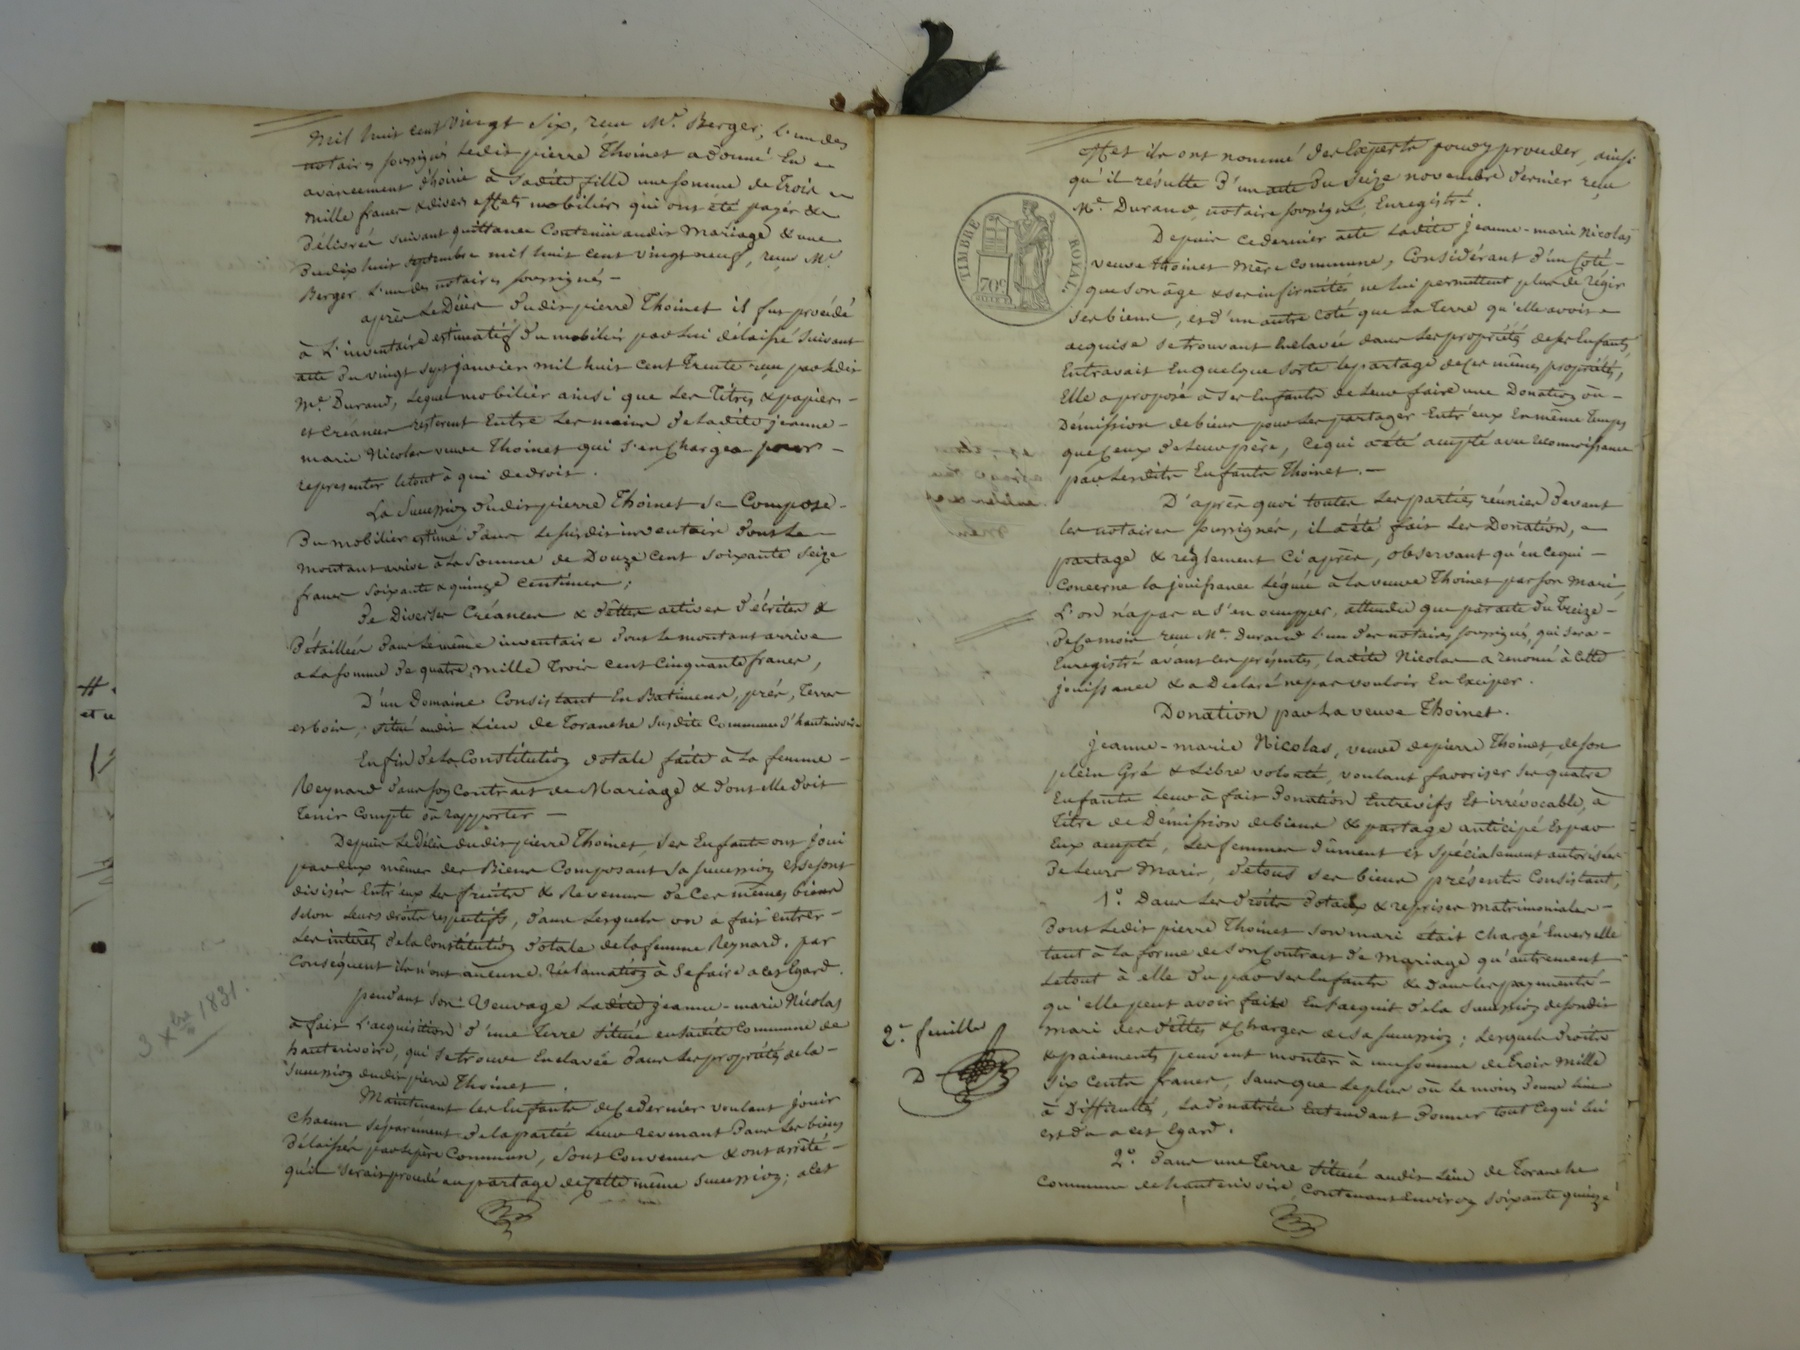 mil huit cent vingt six, reçu Me. Berger, l'un des
notaires soussignés ledit pierre Thoinet a donné En
avancement d'hoirie à sadite fille une somme de Trois
mille francs & divers effets mobiliers qui ont été payés &
délivrés suivant quittance contenue audit mariage & une
du dix huit septembre mil huit cent vingt neuf, reçue Me.
Berger l'un des notaires soussignés -
après le Décès dudit pierre Thoinet il fut procédé
à l'inventaire estimatif du mobilier par lui délaissé suivant
acte du vingt sept janvier mil huit cent trente reçu par ledit
Me. Durand, lequel mobilier ainsi que les titres & papiers -
et créances resterent Entre les mains de ladite jeanne -
marie Nicolas veuve Thoinet qui s'en chargea pour -
representer le tout à qui de droit.
La Succession dudit pierre Thoinet se Compose -
Du mobilier estimé dans le susdit inventaire dont le
montant arrive à la Somme de Douze cent soixante seize
francs soixante & quinze centimes ;
De Diverses Créances & dettes actives décrites &
Détaillées dans le même inventaire dont le montant arrive
a la somme de quatre mille Trois cent cinquante francs,
D'un Domaine Consistant En Batimens, prés, Terres
et bois, situé audit Lieu de Toranche susdite Commune d'hauterivoire
Enfin de la Constitution dotale faite à la femme -
Reynard dans son contrat de Mariage & dont elle doit
tenir Compte ou rapporter —
Depuis le Décès dudit pierre Thoinet, ses Enfants ont joui
par eux mêmes des Biens Composant sa succession et se sont
divisés Entr'eux les fruits & Revenus de ces mêmes biens
selon leurs droits respectifs, dans lesquels on a fait entrer -
les intérêts de la Constitution dotale de la femme Reynard. par
Conséquent ils n'ont aucune réclamation à se faire a cet Egard.
pendant son Veuvage Ladite jeanne-marie Nicolas
a fait l'acquisition d'une Terre située en sadite Commune de
hauterivoire, qui se trouve Enclavée dans les propriétés de la -
succession dudit pierre Thoinet.
Maintenant les Enfants de ce dernier voulant jouir
chacun séparément de la partie leur revenant dans les biens
délaissés par le père Commun, sont Convenus & ont arrêté -
qu'il serait procédé au partage de cette même succession ; a cet
3 xbre 1831.
effet ils ont nommé des Experts pour y proceder, ainsi
qu'il résulte d'un acte du seize novembre dernier reçu
Me. Durand, notaire soussigné, Enregistré.
TIMBRE ROYAL
70c
Depuis ce dernier acte Ladite jeanne-marie Nicolas
veuve Thoinet mère commune, Considérant d'un Coté -
que son âge & ses infirmités ne lui permettent plus de régir
ses biens, et d'un autre coté que la Terre qu'elle avoit
acquise se trouvant Enclavée dans les propriétés de ses Enfants
Entravait En quelque sorte le partage de ces mêmes propriétés,
Elle a proposé à ses Enfants de leur faire une Donation ou -
Démission de biens pour les partager Entr'eux En même Temps
que Ceux de leur père, ce qui a été accepté avec reconnaissance
par lesdits Enfants Thoinet. —
D'après quoi toutes les parties réunies devant
les notaires soussignés, il a été fait les Donation,
partage & règlement Ci après, observant qu'en ce qui -
Concerne la jouissance léguée à la veuve Thoinet par son mari,
L'on n'a pas a s'en occupper, attendu que par acte du treize -
de ce mois reçu Me. Durand l'un des notaires soussignés, qui sera -
Enregistré avant les présentes, ladite Nicolas a renoncé à cette
jouissance & a Déclaré ne pas vouloir En Exciper.
Donation par La veuve Thoinet.
jeanne-marie Nicolas, veuve de pierre Thoinet, de son
plein Gré & Libre volonté, voulant favoriser ses quatre
Enfants leur à fait Donation Entrevifs Et irrévocable, à
Titre de Démission de biens & partage anticipé Et par
Eux accepté, les femmes dûment et spécialement autorisées
De leurs Maris, de tous ses biens présents Consistant,
1°. Dans les droits dotaux & reprises matrimoniales -
Dont ledit pierre Thoinet son mari etait chargé Envers elle
tant à la forme de son Contrat de Mariage qu'autrement
le tout à elle du par ses Enfants & dans les payments -
qu'elle peut avoir faits En l'acquit de la succession de son dit
mari des dettes & Charges de sa succession ; lesquels droits
& paiements peuvent monter à une somme de Trois mille
six cents francs, sans que le plus ou le moins donne lieu
à Difficultés, La donatrice Entendant Donner tout ce qui lui
est du a cet Egard.
2°. Dans une Terre située audit Lieu de Toranche
Commune de hauterivoire, Contenant Environ soixante quinze
2e. feuille
D